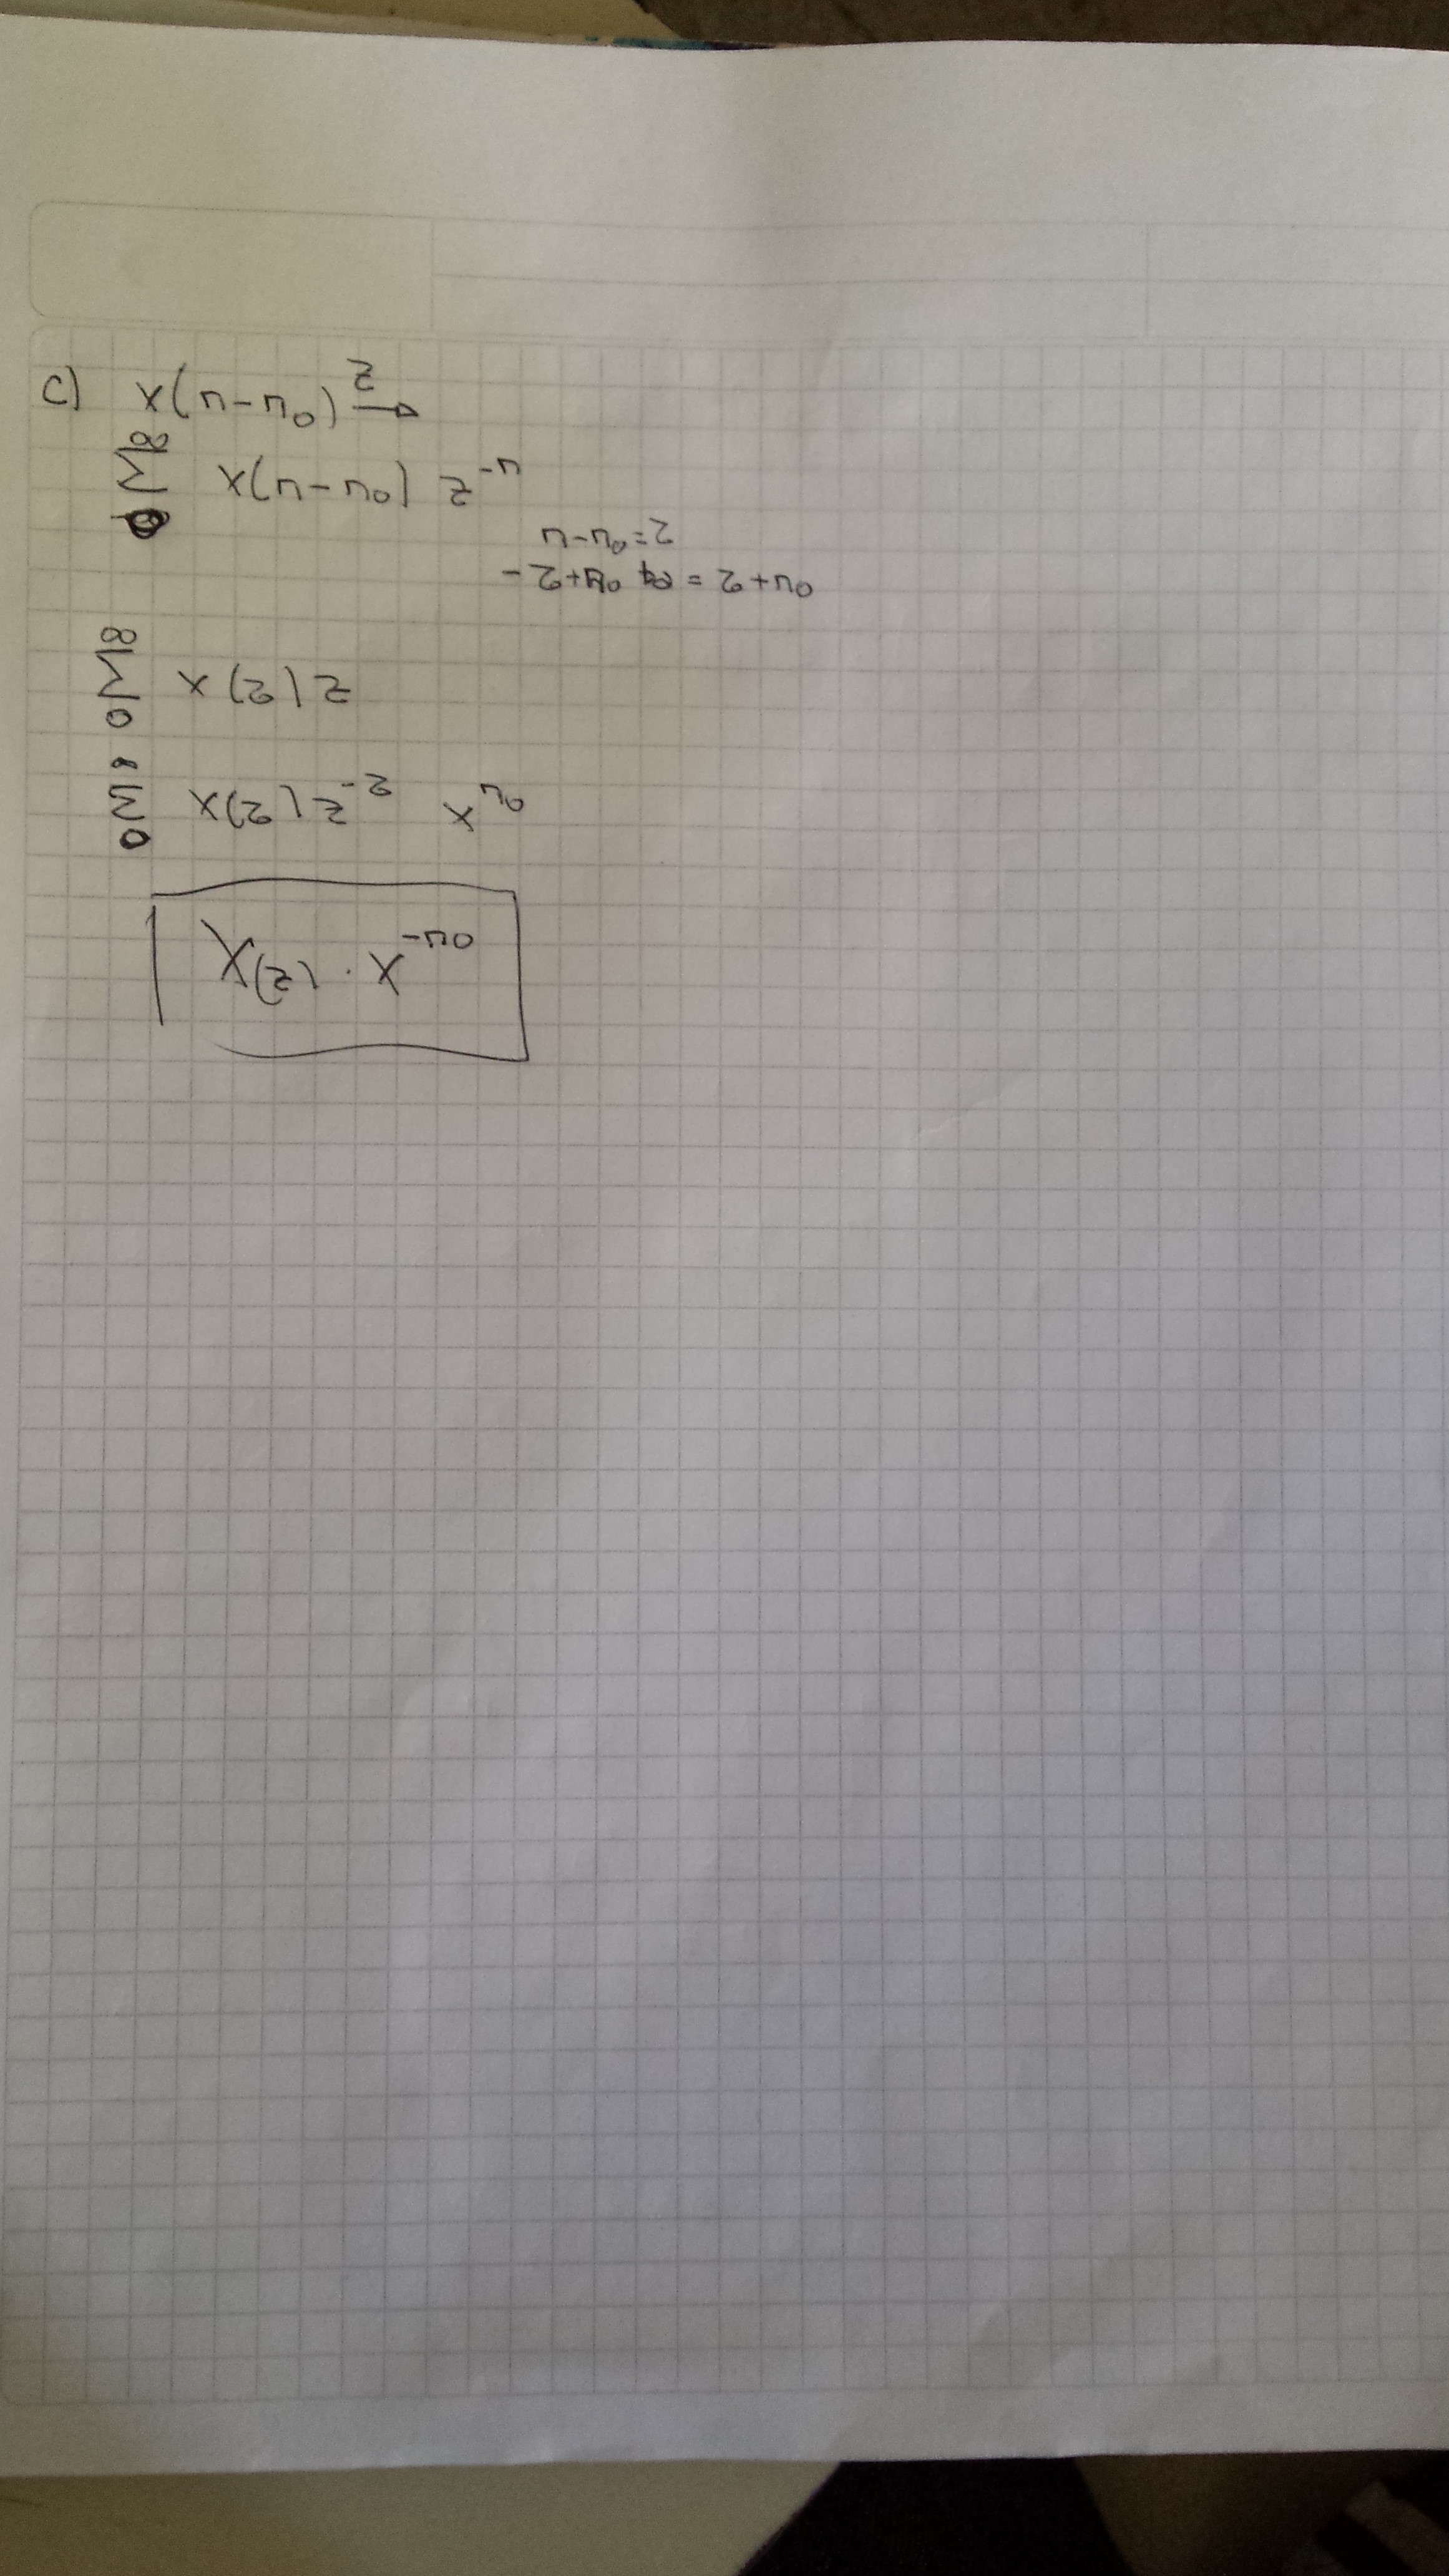 c) x(n-n₀) z→
∞ Σ 0 x(n-n₀) z⁻ⁿ
n-n₀=2
-2+n₀ = 2+n₀
∞ Σ 0 x(2) z
Σ 0 x(2) z⁻² xⁿ⁰
X(z) · x⁻ⁿ⁰